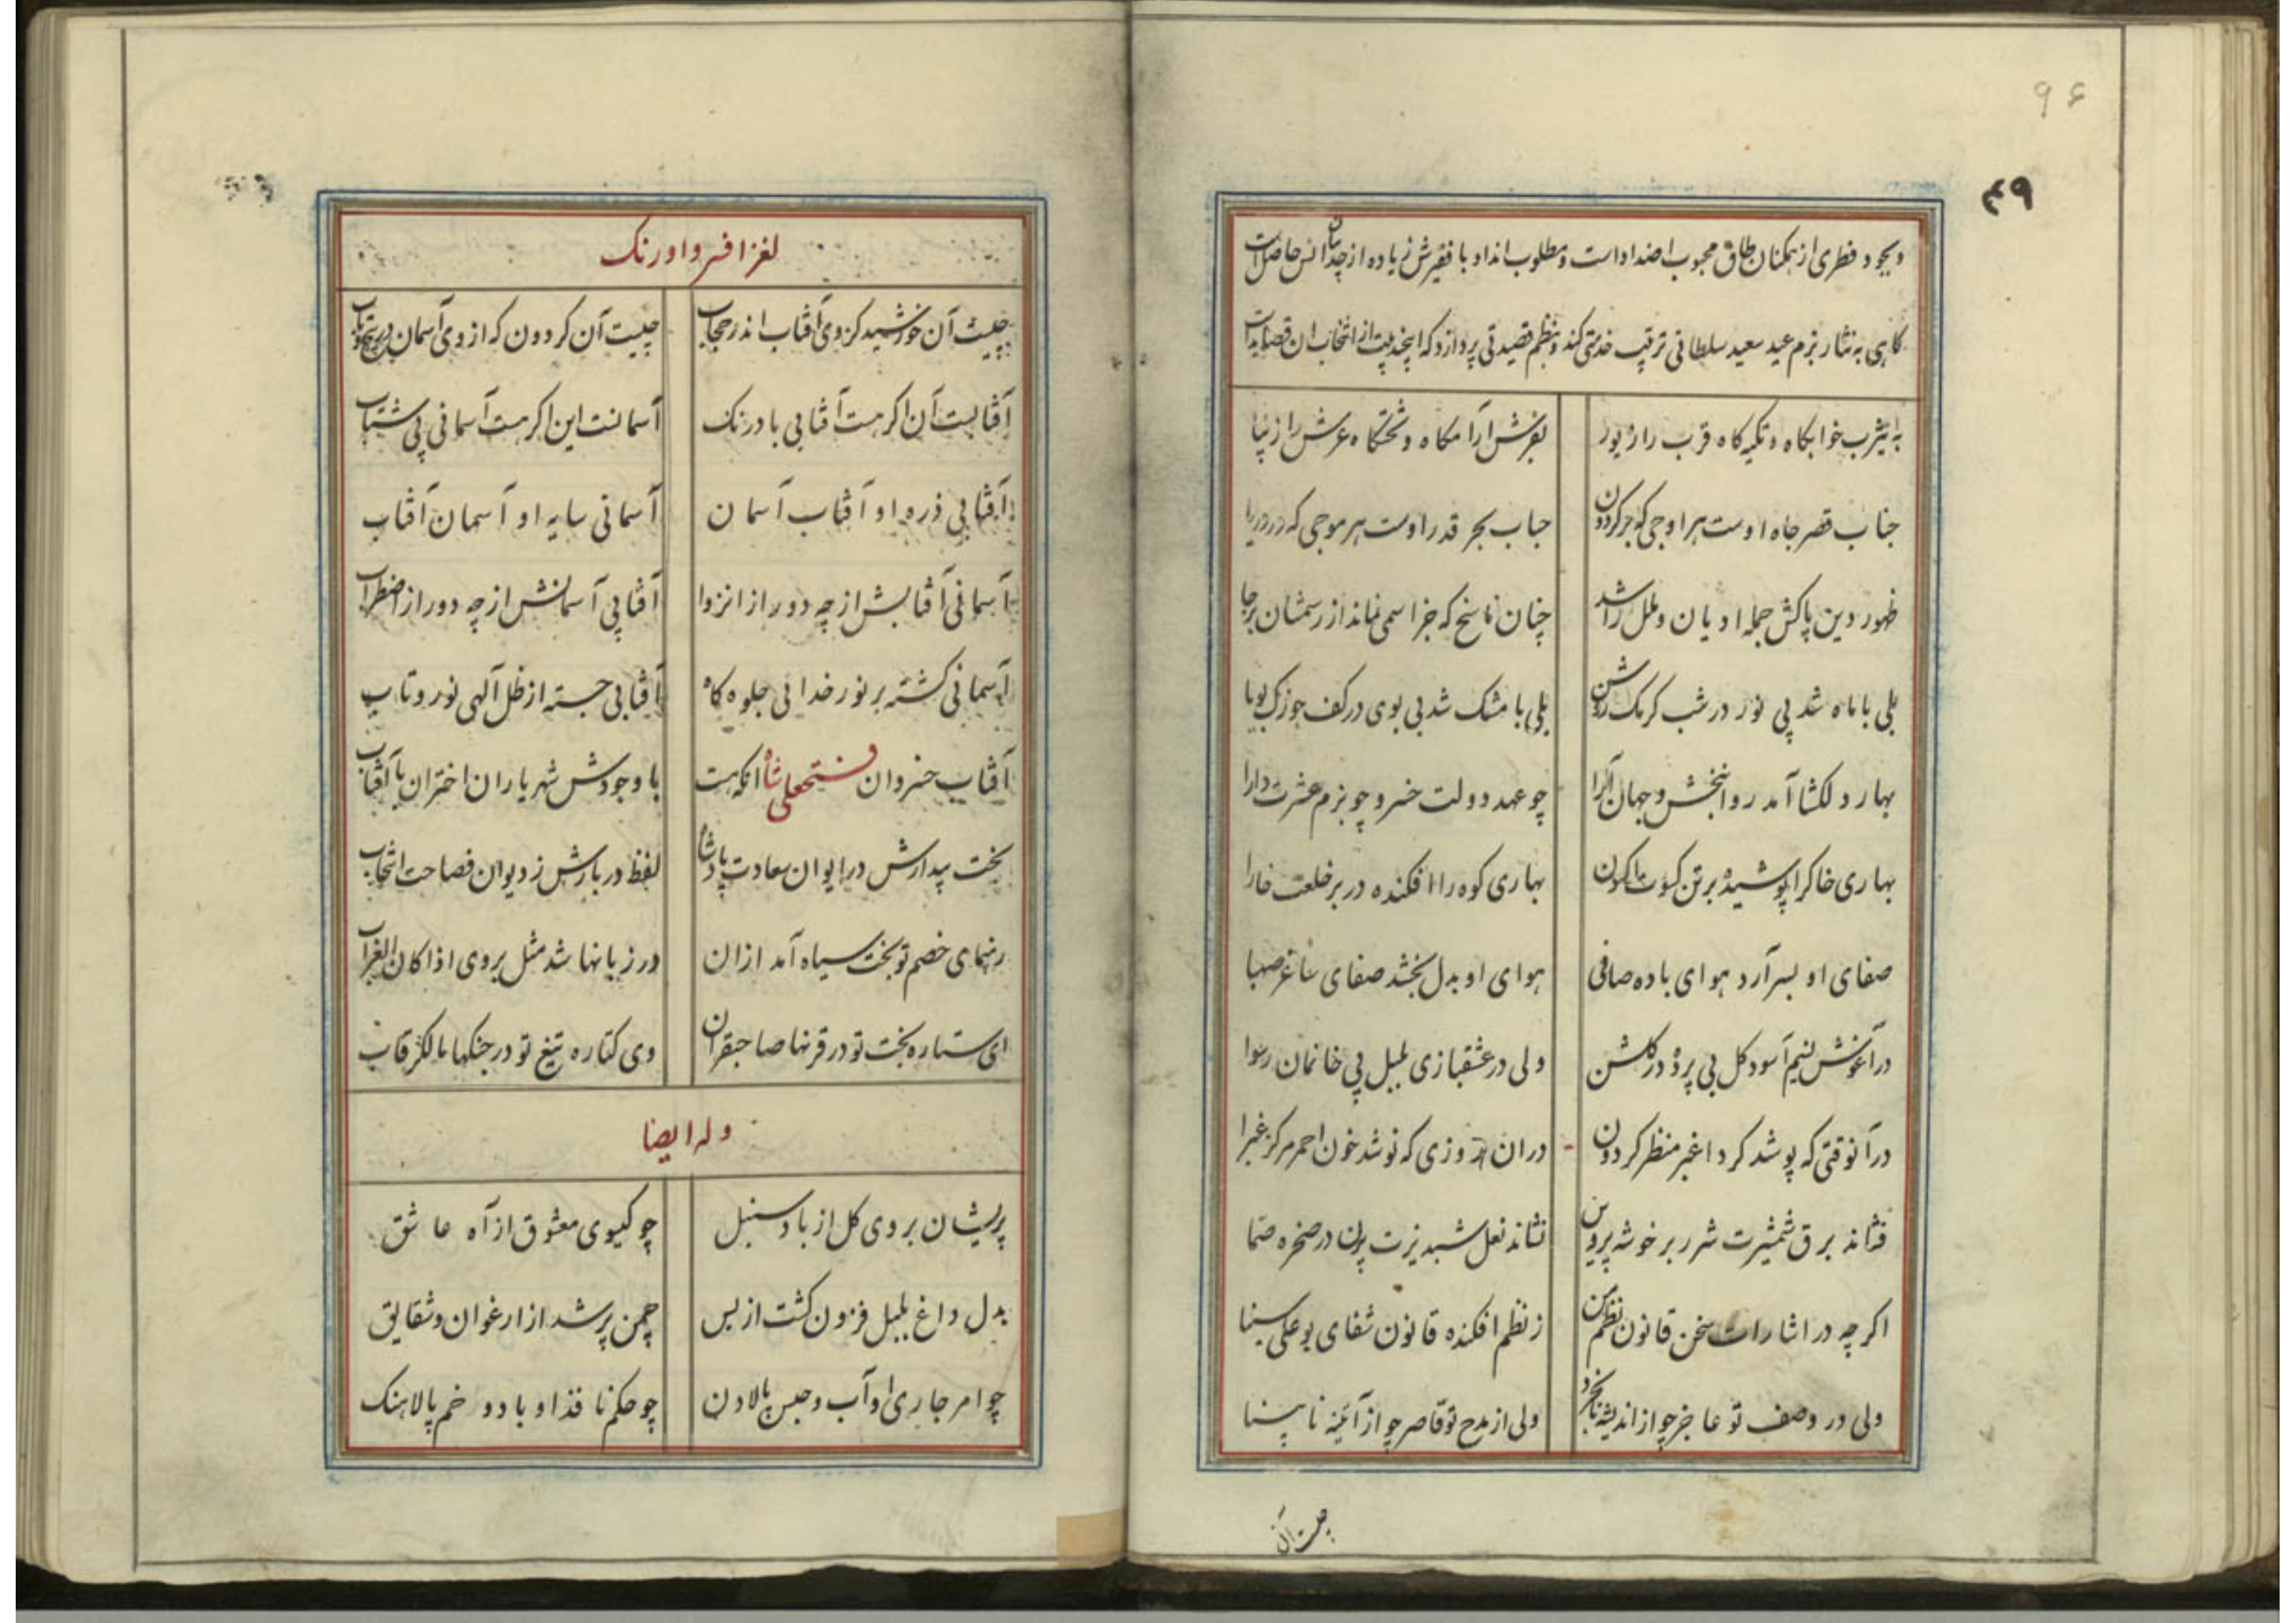 ۹۶
۴۹
وبجود فطری از همکنان طاق محبوب اضداد است و مطلوب انداد با فقیرش زیاده از چندان انس حاصل است
کاهی به نثار بزم عید سعید سلطانی ترتیب خدمتی کند و بنظم قصیدتی پردازد که این چند بیت از انتخاب ان قصاید است
به یثرب خوابکاه و تکیه کاه قرب را زیور بفرش ارامکاه و تختکاه عرش را زیبا
جناب قصر جاه اوست هر اوجی که بر کردون حباب بحر قدر اوست هر موجی که در دریا
ظهور دین پاکش جمله ادیان و ملل را شد چنان ناسخ که جز اسمی نماند از رسمشان برجا
بلی با ماه شد بی نور در شب کرمک روشن بلی با مشک شد بی بوی در کف جوزک بویا
بهار دلکشا آمد روانبخش و جهان آرا چو عهد دولت خسرو چو بزم عشرت دارا
بهاری خاکرا پوشیده بر تن کسوت کون بهاری کوه را افکنده در بر خلعت خارا
صفای او بسر آرد هوای باده صافی هوای او بدل بخشد صفای ساغر صهبا
در آغوش نسیم آسود کل بی پرده در کلشن ولی در عشقبازی بلبل بی خانمان رسوا
در آنوقتی که پوشد کرد اغبر منظر کردون در ان روزی که نوشد خون احمر مرکز غبرا
فشاند برق شمشیرت شرر بر خوشه پروین نشاند نعل شبدیزت پرن در صخره صما
اکر چه در اشارات سخن قانون نظم من ز نظم افکنده قانون شفای بوعلی سینا
ولی در وصف تو عاجز چو از اندیشه نابخرد ولی از مدح تو قاصر چو از آئینه نابینا
چیست آن
لغز افسر و اورنک
چیست آن خورشید کز وی آفتاب اندر حجاب چیست آن کردون که از وی آسمان در پیچ و تاب
آفتابست آن اکر هست آفتابی با درنک آسمانست این اکر هست آسمانی پی شتاب
آفتابی ذره او آفتاب آسمان آسمانی سایه او آسمان آفتاب
آسمانی آفتابش از چه دور از انزوا آفتابی آسمانش از چه دور از اضطراب
آسمانی کشته بر نور خدائی جلوه کاه آفتابی جسته از ظل آلهی نور و تاب
آفتاب خسروان فتحعلی شاه انکه هست با وجودش شهریاران اختران با آفتاب
بخت بیدارش در ایوان سعادت پادشاه لفظ دربارش ز دیوان فصاحت انتخاب
رهنمای خصم تو بخت سیاه آمد از ان در زبانها شد مثل بروی اذا کان الغراب
ای ستاره بخت تو در قرنها صاحبقران وی کتاره تیغ تو در جنکها مالک رقاب
وله ایضا
پریشان بروی کل از باد سنبل چو کیسوی معشوق از آه عاشق
بدل داغ بلبل فزون کشت از بس چمن پر شد از ارغوان و شقایق
چو امر جاری او آب و حبس پالاون چو حکم نافذ او باد و خم پالاهنک